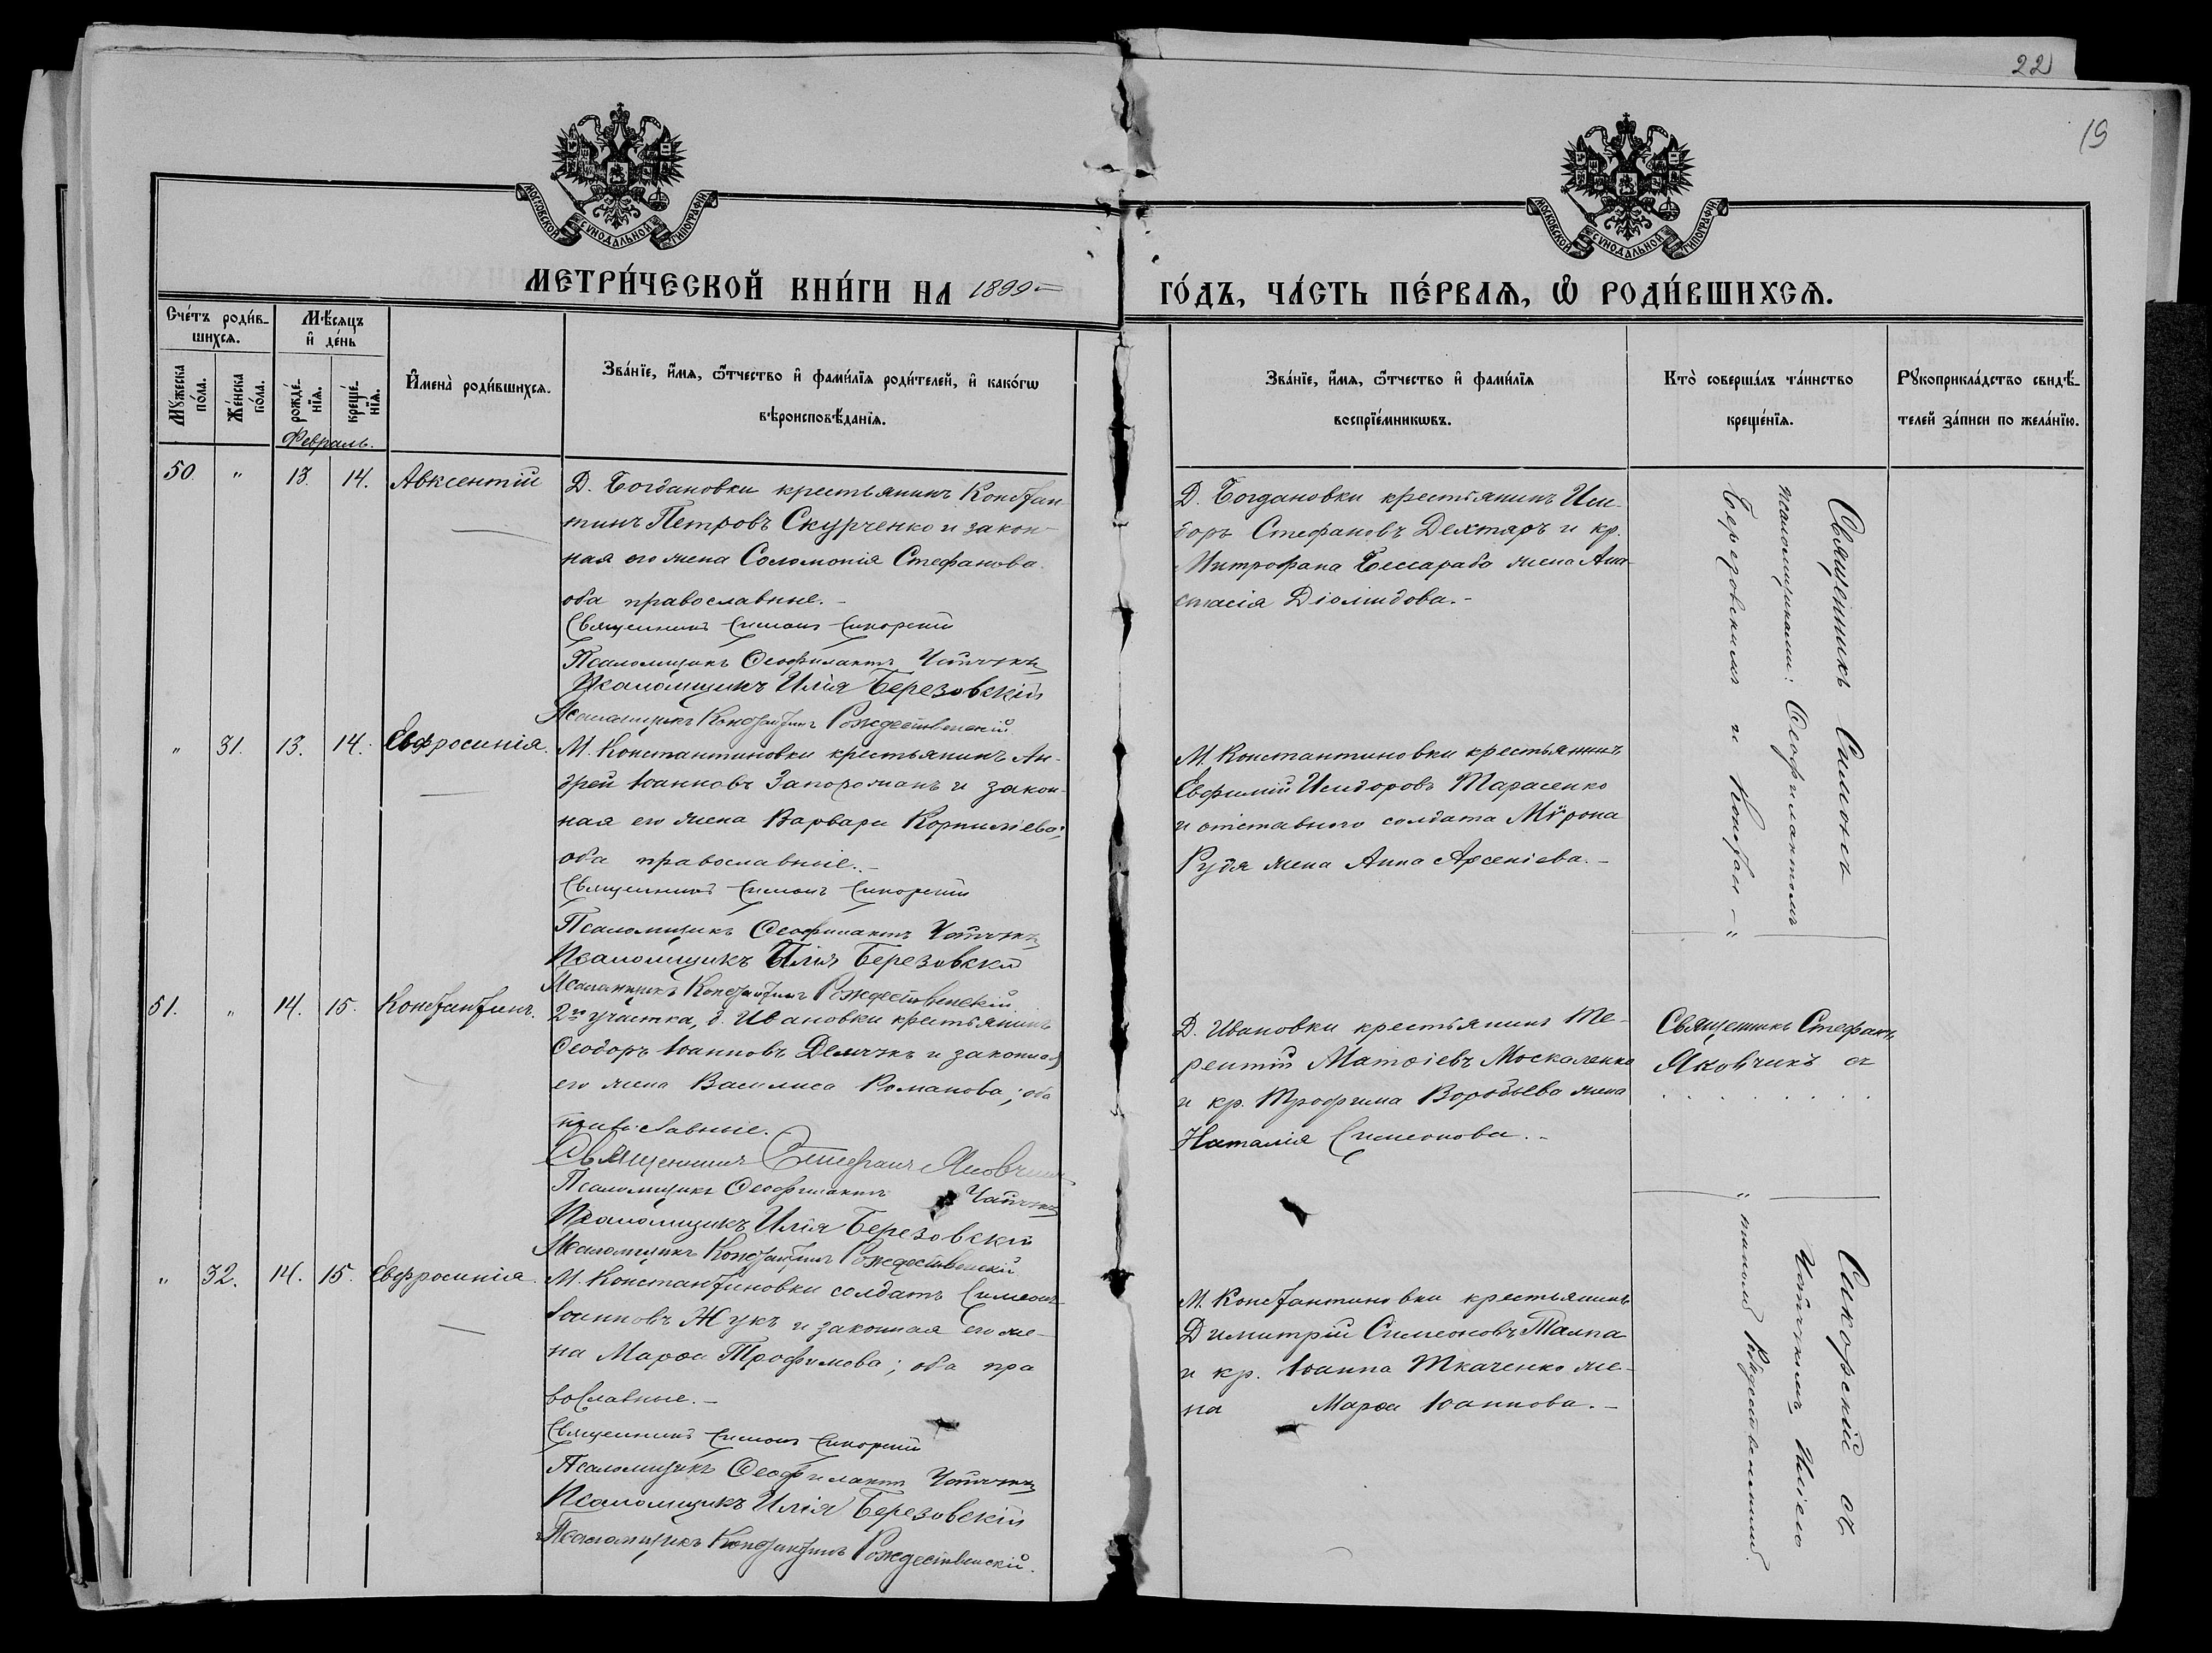 22
19
МОСКОВСКОЙ СѴНОДАЛЬНОЙ ТИПОГРАФІИ
МОСКОВСКОЙ СѴНОДАЛЬНОЙ ТИПОГРАФІИ
МЕТРИ́ЧЕСКОЙ КНИ́ГИ НА 1899
ГО́ДЪ, ЧА́СТЬ ПЕ́РВАЯ, Ѡ РОДИ́ВШИХСЯ.
Сче́тъ роди́в-
шихся.
Мѣ́сяцъ
и҆ де́нь
Мꙋ́жеска
по́ла.
Же́нска
по́ла.
рожде́-
нїя.
креще́-
нїя.
И҆мена̀ роди́вшихся.
Зва́нїе, и҆́мя, ѻ҆́тчество и҆ фами́лїя роди́телей, и҆ како́гѡ
вѣроисповѣ́данїя.
Зва́нїе, и҆́мя, ѻ҆́тчество и҆ фами́лїя
воспрїе́мникѡвъ.
Кто̀ соверша́лъ та́инство
креще́нїя.
Рꙋкоприкла́дство свидѣ́-
телей за́писи по жела́нїю.
Февраль.
50. " 13. 14. Авксентій
Д. Богдановки крестьянинъ Констан-
тинъ Петровъ Скурченко и закон-
ная его жена Соломонія Стефанова.
оба православные.-
Священникъ Симонъ Сикорскій
Псаломщикъ Ѳеофилактъ
Псаломщикъ Илія Березовскій
Псаломщикъ Константинъ Рождественскій
Д. Богдановки крестьянинъ Иси-
доръ Стефановъ Дехтяръ и кр.
Митрофана Бессараба жена Ана-
стасія Діомидова.-
" 31. 13. 14. Евфросинія.
М. Константиновки крестьянинъ Ан-
дрей Іоанновъ Запорожанъ и закон-
ная его жена Варвара Корниліева;
оба православные.-
Священникъ Симонъ Сикорскій
Псаломщикъ Ѳеофилактъ
Псаломщикъ Илія Березовскій
Псаломщикъ Константинъ Рождественскій
М. Константиновки крестьянинъ
Евфимій Исидоровъ Тарасенко
и отставного солдата Мѵрона
Рудя жена Анна Арсеніева.-
Священникъ Симонъ
псаломщиками: Ѳеофилактомъ
Березовскимъ и Констан-
51. " 14. 15. Константинъ.
2го участка, д. Ивановки крестьянинъ
Ѳеодоръ Іоанновъ и законная
его жена Василиса Романова; оба
православные.
Священникъ Стефанъ Яковчикъ
Псаломщикъ Ѳеофилактъ
Псаломщикъ Илія Березовскій
Псаломщикъ Константинъ Рождественскій
Д. Ивановки крестьянинъ Те-
рентій Матѳіевъ Москаленко
и кр. Трофима Воробьева жена
Наталія Симеонова.-
Священникъ Стефанъ
Яковчикъ съ
" 32. 14. 15. Евфросинія
М. Константиновки солдатъ Симеонъ
Іоанновъ Жукъ и законная его же-
на Марѳа Трофимова; оба пра
вославные.-
Священникъ Симонъ Сикорскій
Псаломщикъ Ѳеофилактъ
Псаломщикъ Илія Березовскій
Псаломщикъ Константинъ Рождественскій.
М. Константиновки крестьянинъ
Димитрій Симеоновъ Талпа
и кр. Іоанна Ткаченко же-
на Марѳа Іоаннова.-
Сикорскій съ
Иліею
тиномъ Рождественскимъ.